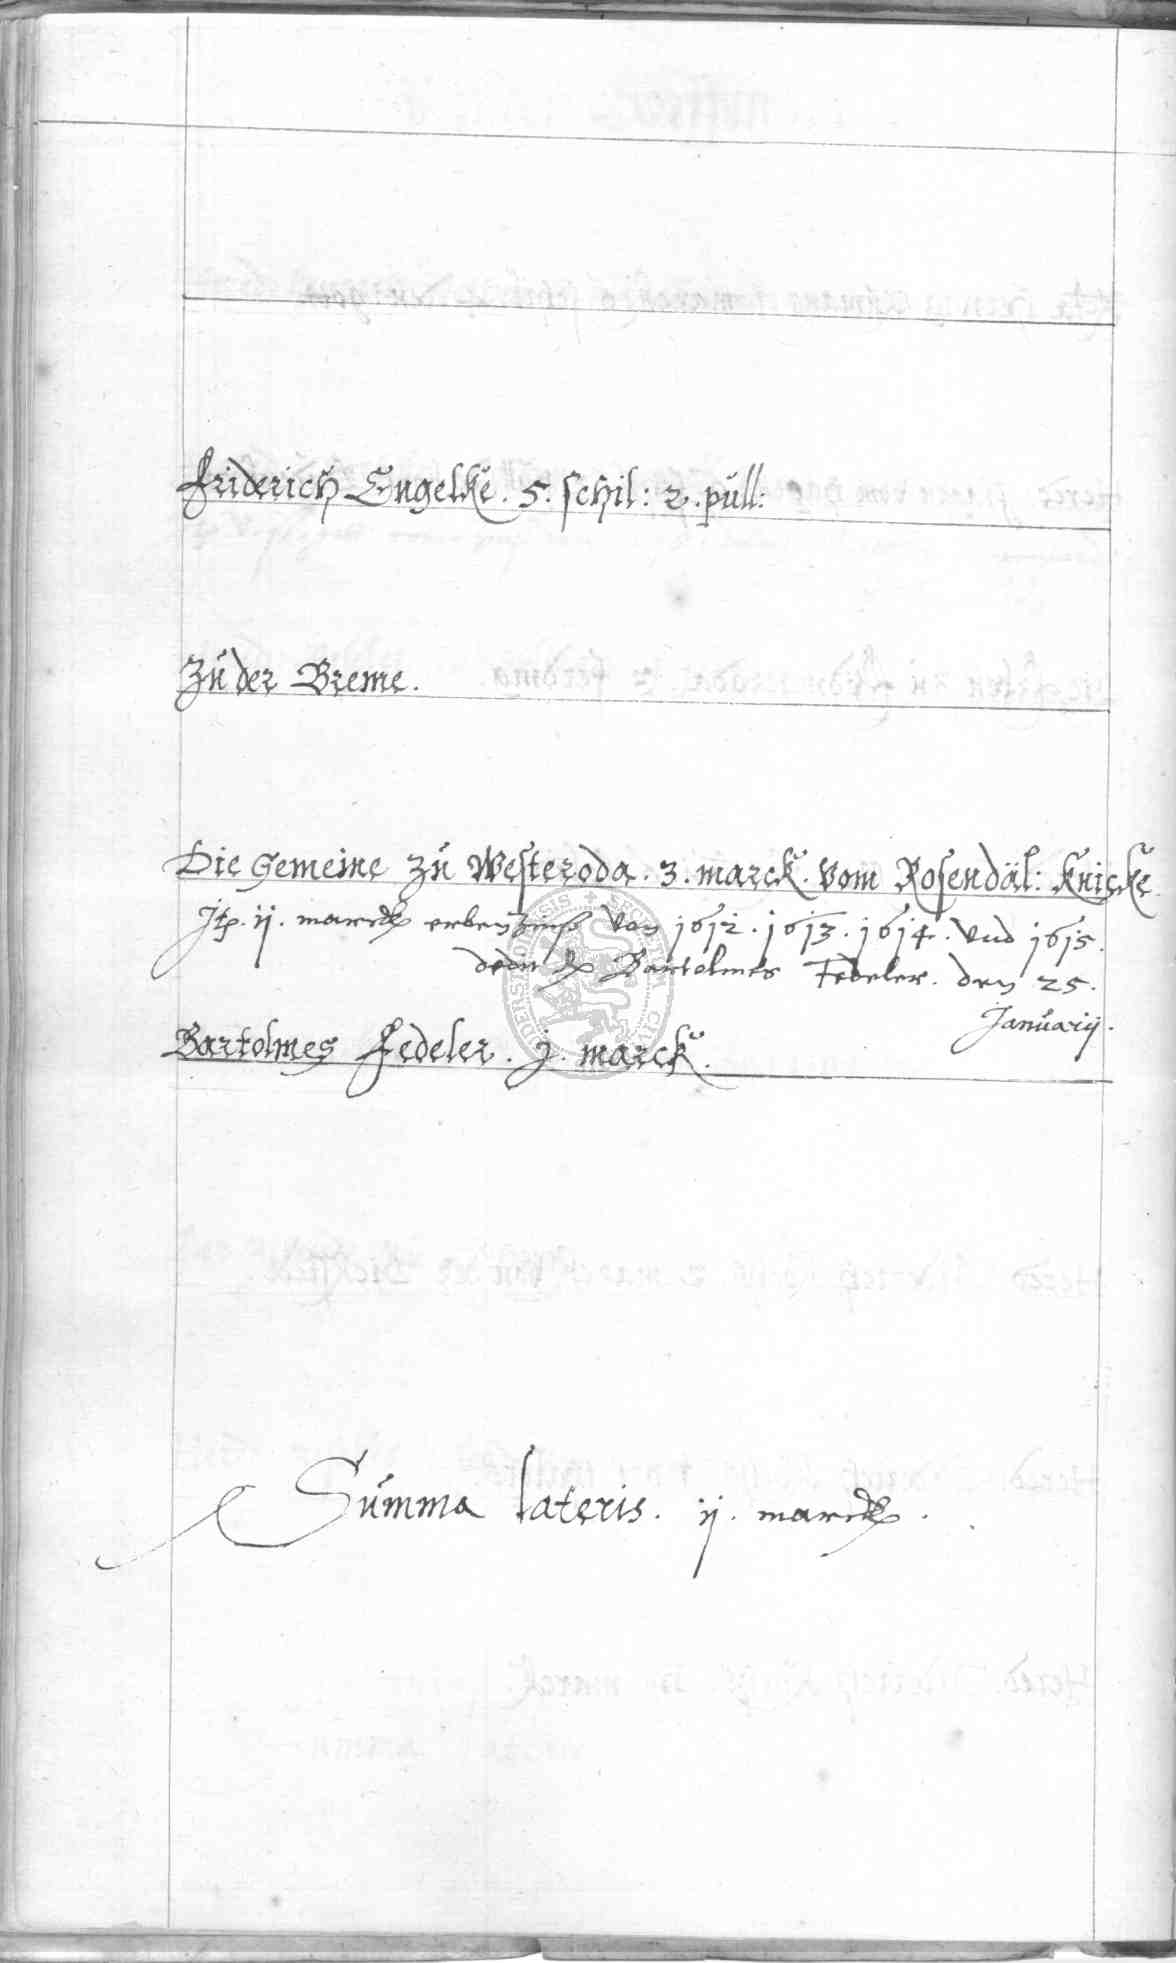 Friderich Engelke. 5. schil: 2. pull:
Zu der Breme.
Die Gemeine zu Westeroda. 3. marck. vom Rosendäl: Knicke.
Itp. ij. marck erbenzinß von 1612. 1613. 1614. vnd 1615.
dedit Bartolmes Fedeler. den 25.
Januarij.
Bartolmes Fedeler. j. marck.
Summa lateris. ij. marck.